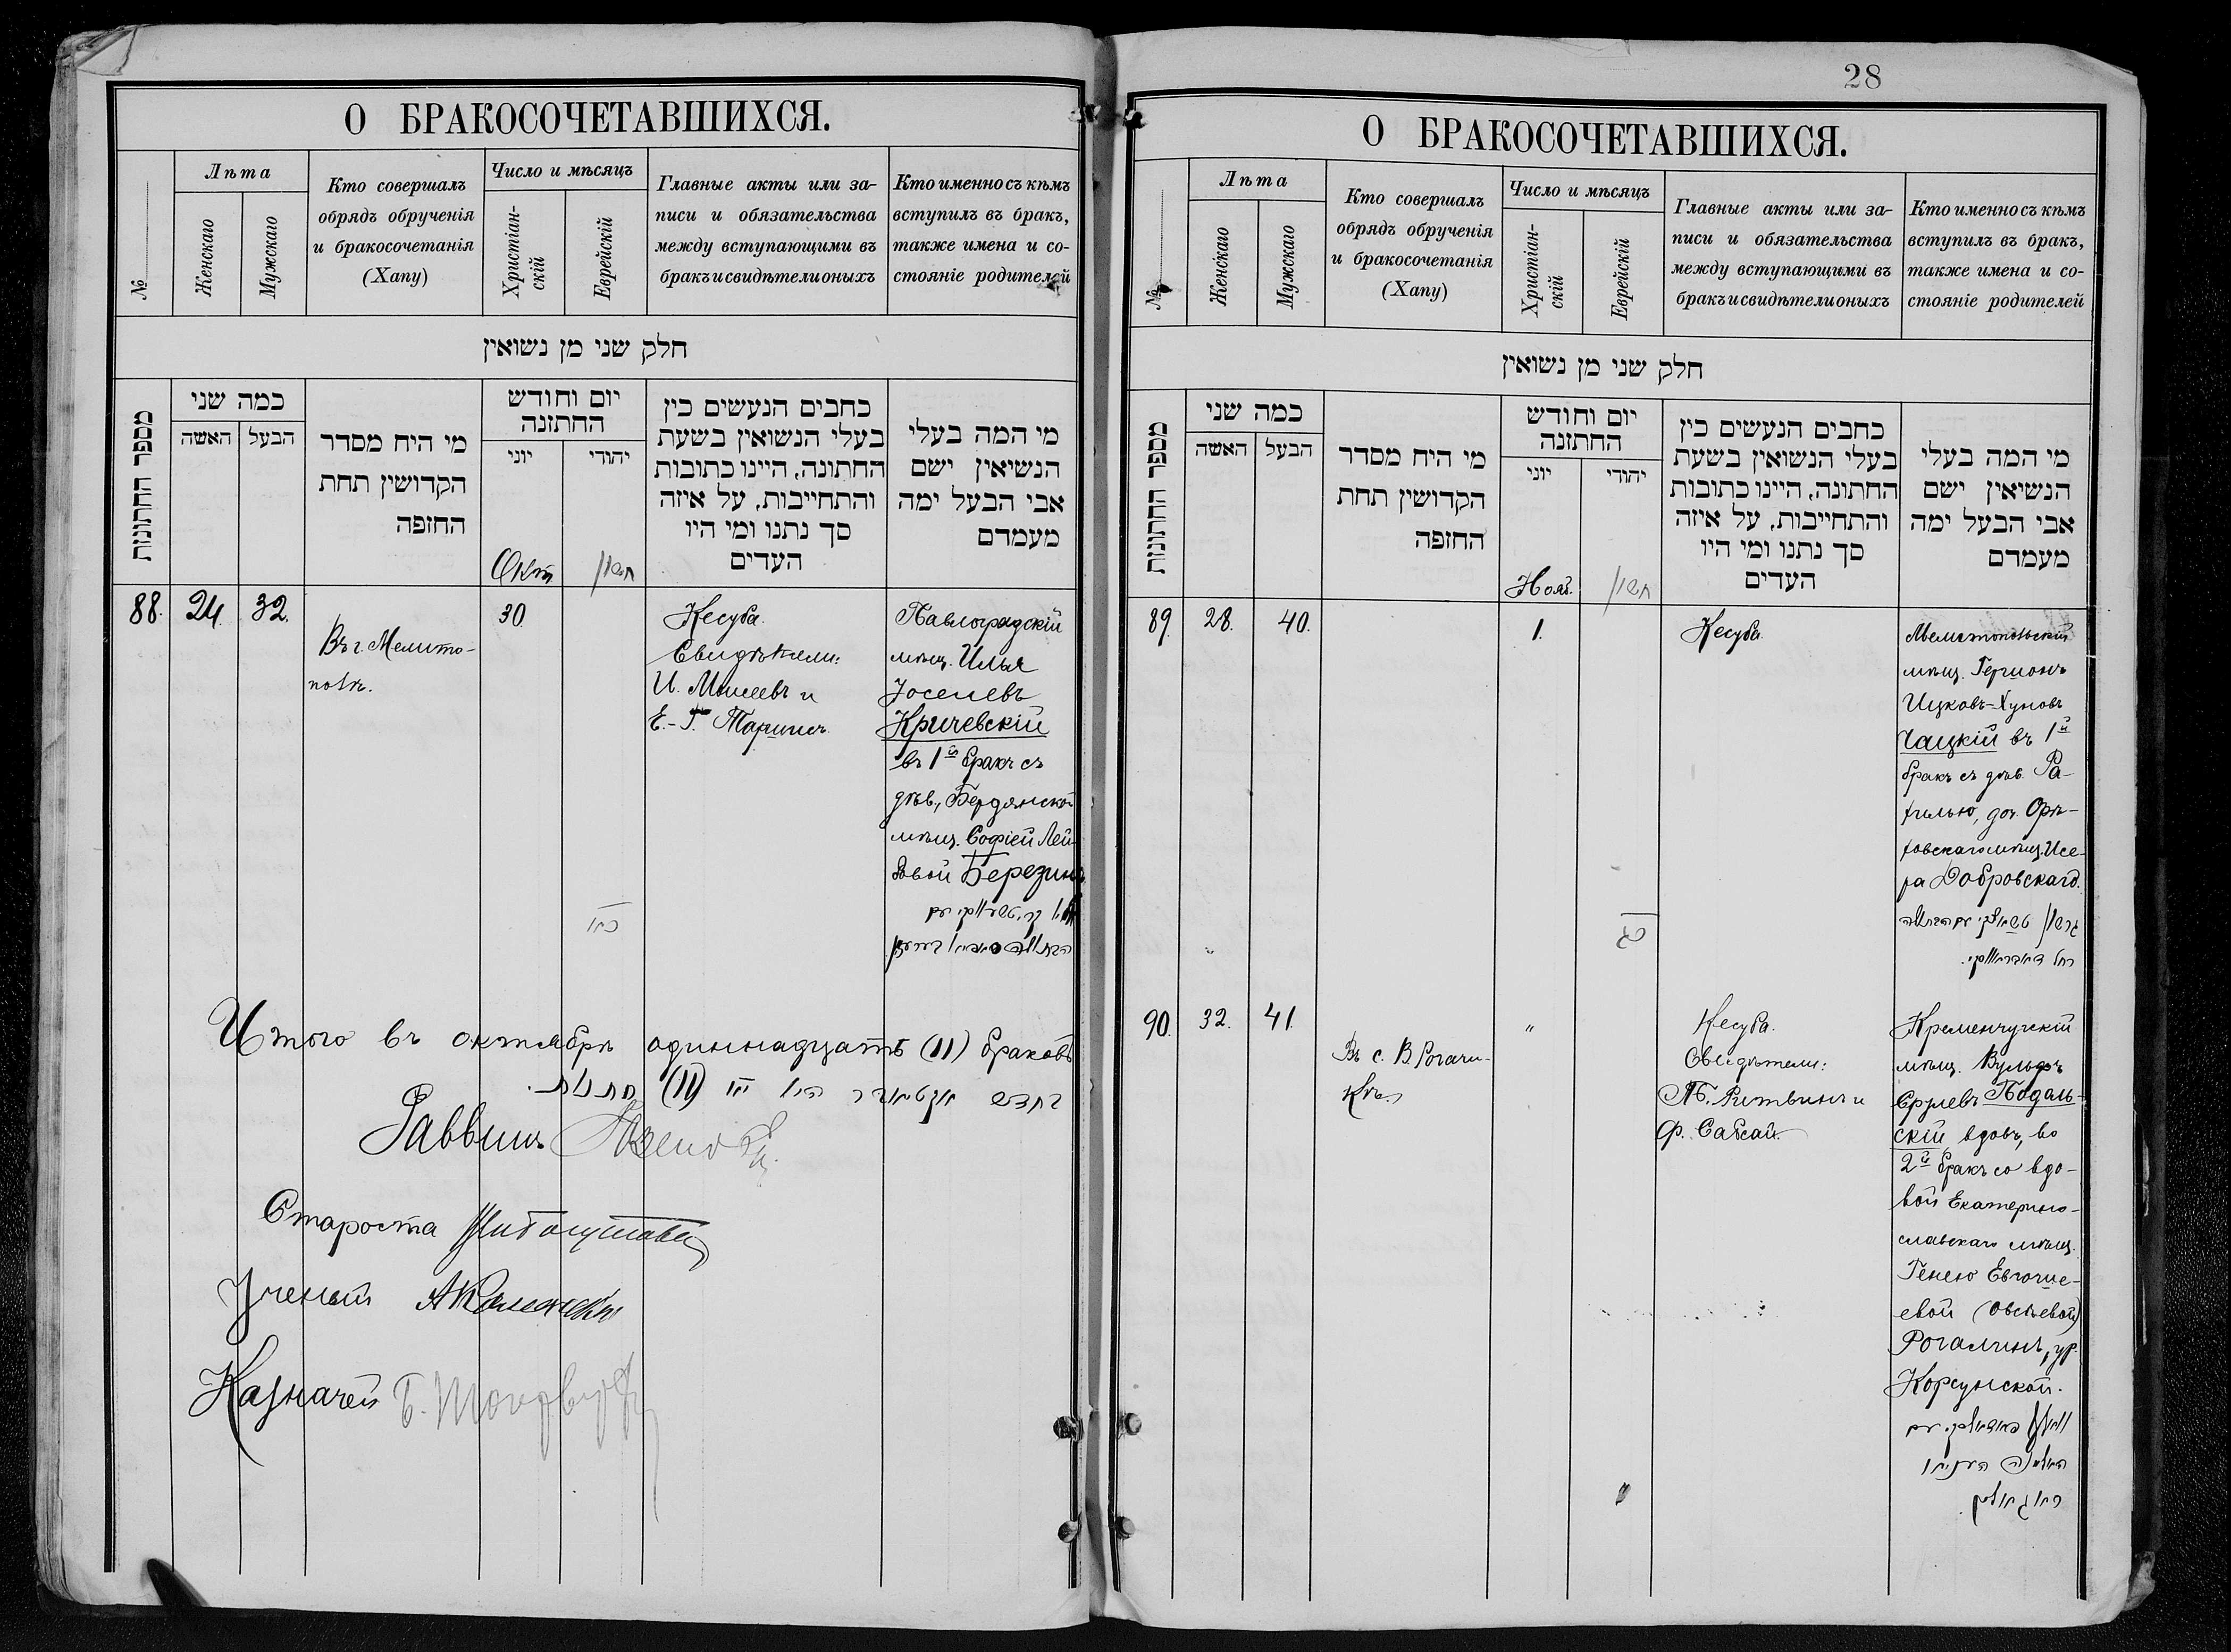 О БРАКОСОЧЕТАВШИХСЯ.
№
Лѣта
Женскаго
Мужскаго
Кто совершалъ
обрядъ обрученія
и бракосочетанія
(Хапу)
Число и мѣсяцъ
Христіан-
скій
Еврейскій
Главные акты или за-
писи и обязательства
между вступающими въ
бракъ и свидѣтели оныхъ
Кто именно съ кѣмъ
вступилъ въ бракъ,
также имена и со-
стояніе родителей
חלק שני מן נשואין
מספר החתונות
כמה שני
האשה
הבעל
מי היח מסדר
הקדושין תחת
החזפה
יום וחודש
החתזנה
יוני
יהודי
כחבים הנעשים כין
בעלי הנשואין בשעת
החתונה, היינו כתובות
והתחייבות, על איזה
סך נתנו ומי היו
העדים
מי המה בעלי
הנשיאין ישם
אבי הבעל ימה
מעמדם
Окт
חשון
88. 24. 32.
Въ г. Мелито-
полѣ.
30.
Кесуба.
Свидѣтели:
И. Моисеевъ и
Е.-Г.
Павлоградскій
мѣщ. Илья
Іоселевъ
Кричевскій
въ 1й бракъ съ
дѣв., Бердянской
мѣщ. Софіей Лей-
бовой Березинъ
Итого въ октябрѣ одиннадцать (11) браковъ
(11)
Раввинъ
Староста
Ученый
Казначей
28
О БРАКОСОЧЕТАВШИХСЯ.
№
Лѣта
Женскаго
Мужскаго
Кто совершалъ
обрядъ обрученія
и бракосочетанія
(Хапу)
Число и мѣсяцъ
Христіан-
скій
Еврейскій
Главные акты или за-
писи и обязательства
между вступающими въ
бракъ и свидѣтели оныхъ
Кто именно съ кѣмъ
вступилъ въ бракъ,
также имена и со-
стояніе родителей
חלק שני מן נשואין
מספר החתונות
כמה שני
האשה
הבעל
מי היח מסדר
הקדושין תחת
החזפה
יום וחודש
החתזנה
יוני
יהודי
כחבים הנעשים כין
בעלי הנשואין בשעת
החתונה, היינו כתובות
והתחייבות, על איזה
סך נתנו ומי היו
העדים
מי המה בעלי
הנשיאין ישם
אבי הבעל ימה
מעמדם
Нояб.
חשון
89. 28. 40.
1.
Кесуба.
Мелитопольскій
мѣщ. Гершонъ
Ицковъ-Хуновъ
Чацкій въ 1й
бракъ съ дѣв. Ра-
хилью, доч. Орѣ-
ховскаго мѣщ. Исе-
ра Добровскаго.
90. 32. 41.
Въ с. В. Рогачи-
кѣ.
"
Кесуба.
Свидѣтели:
Литвинъ и
Ф. Сабсай.
Кременчугскій
мѣщ. Вульфъ
Срулевъ Подоль-
скій вдовъ, во
2й бракъ со вдо-
вой Екатерино-
славскаго мѣщ.
Генею Евгение-
евой (Овсѣевой)
Рогалинъ, ур.
Корсунской.